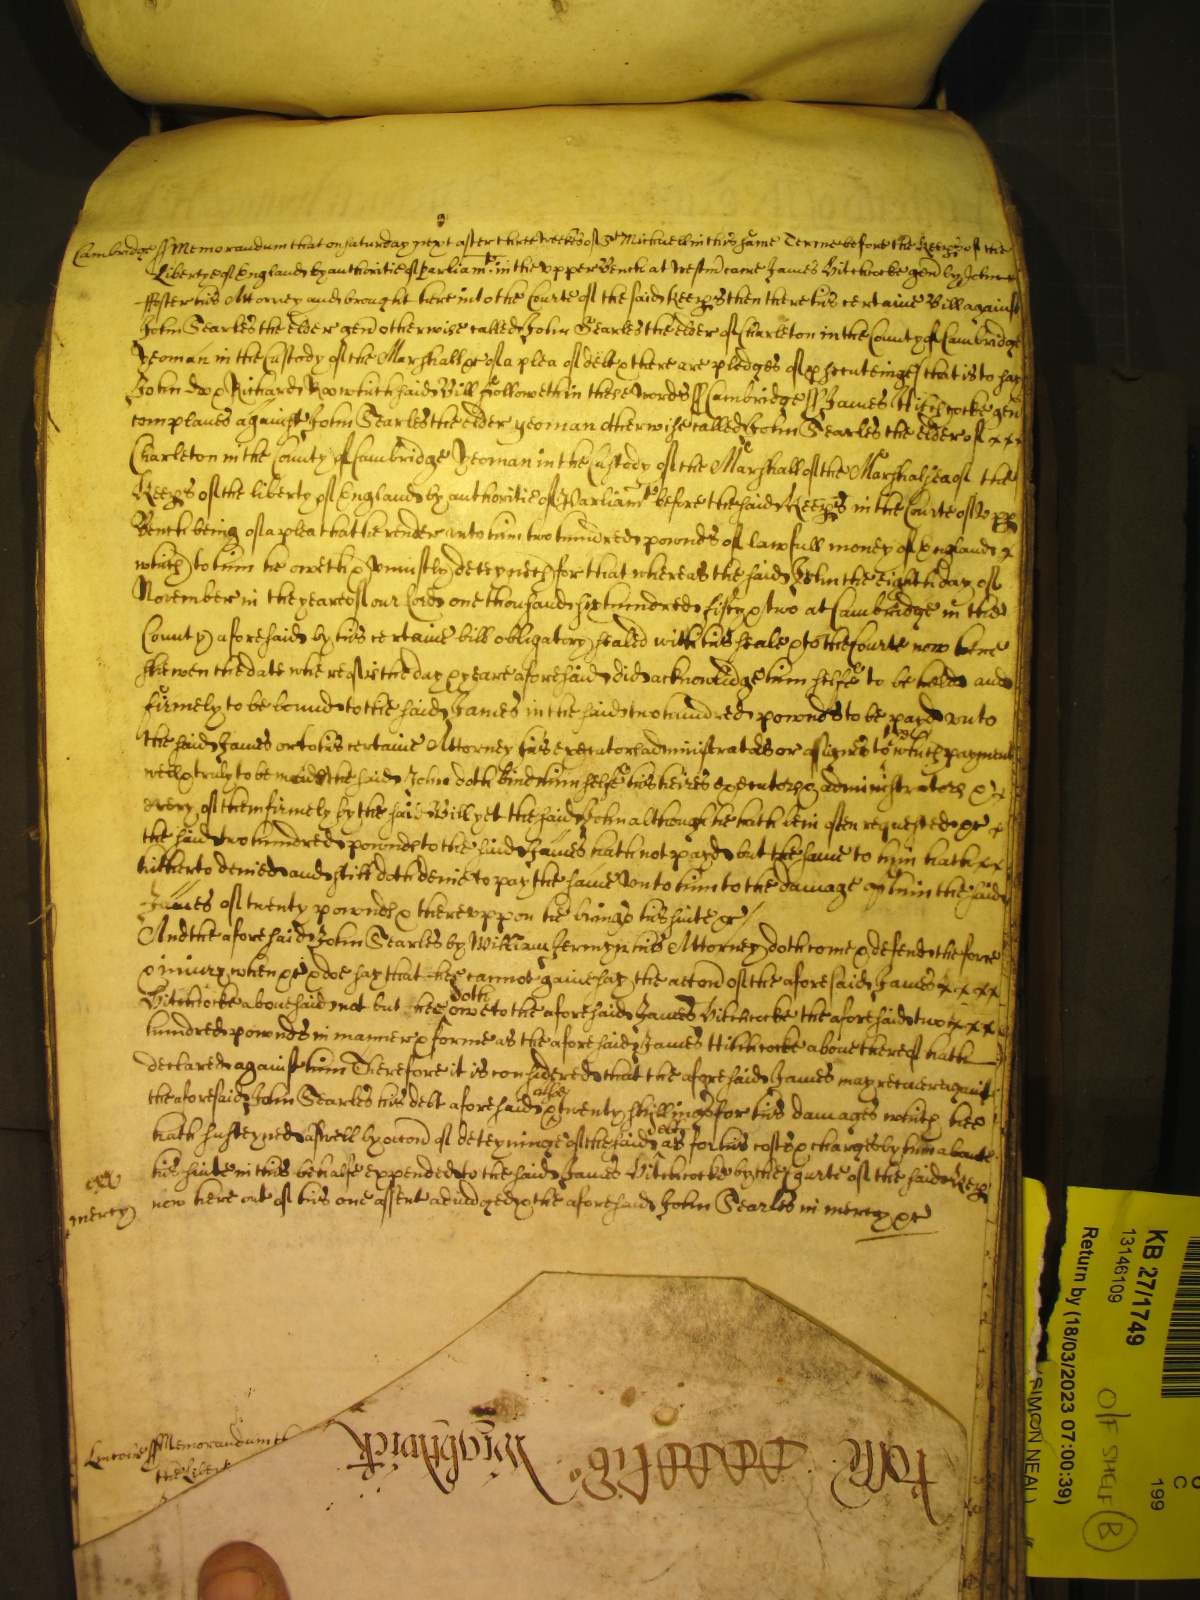 Cambridge ss Memorandum that on Saturday next after three weekes of St Michaell in this same Terme before the Keeps of the
Libertye of England by authoritie of Parliamt in the upper Bench at Westm came James Hitchcocke gen by John
ffoster his Attorney and brought here into the Courte of the said Keeps then there his certaine Bill against
John Searles the elder gen otherwise called John Searles the elder of Charleton in the County of Cambridge
Yeoman in the Custody of the Marshall &c of a plea of debt & there are pledges of prsecuteinge that is to say
John Doo & Richard Roo which said Bill followeth in these words ss Cambridge ss James Hitchcocke gen
complanes against John Searles the elder yeoman otherwise called John Searles the elder of
Charleton in the County of Cambridge Yeoman in the Custody of the Marshall of the Marshalsea of the
Keeps of the liberty of England by authoritie of Parliamt before the said Keeps in the Courte of Upp
Bench being of a plea that he render unto him two hundred pownds of lawfull money of England
which to him he oweth & unjustly deteyneth for that whereas the said John the eighth day of
November in the yeare of our Lord one thousand six hundred fifty & two at Cambridge in the
County aforesaid by his certaine bill obligatory sealed with his seale & to the Courte now here
shewen the date whereof is the day & yeare aforesaid did acknowlidge him selfe to be held and
firmely to be bound to the said James in the said two hundred pownds to be payd unto
the said James or to his certaine Attorney his executors administrators or assignes to wch payment
well & truly to be made the said John doth bind him selfe his heires executors & administrators &
every of them firmely by the said Bill yet the said John although he hath bein often requested &c
the said two hundred pownds to the said James hath not payd but the same to him hath
hitherto denied and still doth denie to pay the same unto him to the damage of him the said
James of twenty pownds & thereuppon he brings his suite &c
And the aforesaid John Searles by William Jermyn his Attorney doth come & defend the force
& injury when &c & doe say that hee cannot gainesay the accon of the aforesaid James
Hitchcocke abovesaid nor but hee doth owe to the aforesaid James Hitchcocke the aforesaid two
hundred pownds in manner & forme as the aforesaid James Hitchcocke above thereof hath
declared against him Therefore it is considered that the aforesaid James may recover against
the aforesaid John Searles his debt aforesaid & twenty shillings for his damages which hee
hath susteyned aswell by occon of deteyninge of the said debt as for his costs & charges by him about
his suite in this behalfe expended to the said James Hitchcocke by the Courte of the said Keeps
now here out of his owne assent adjudged & the aforesaid John Searles in mercy &c
mercy
ss Memorandum th
the Libert
KB 27/1749
13146109
Return by (18/03/2023 07:00:39)
(SIMON NEAL)
O/F SHELF B
C
199